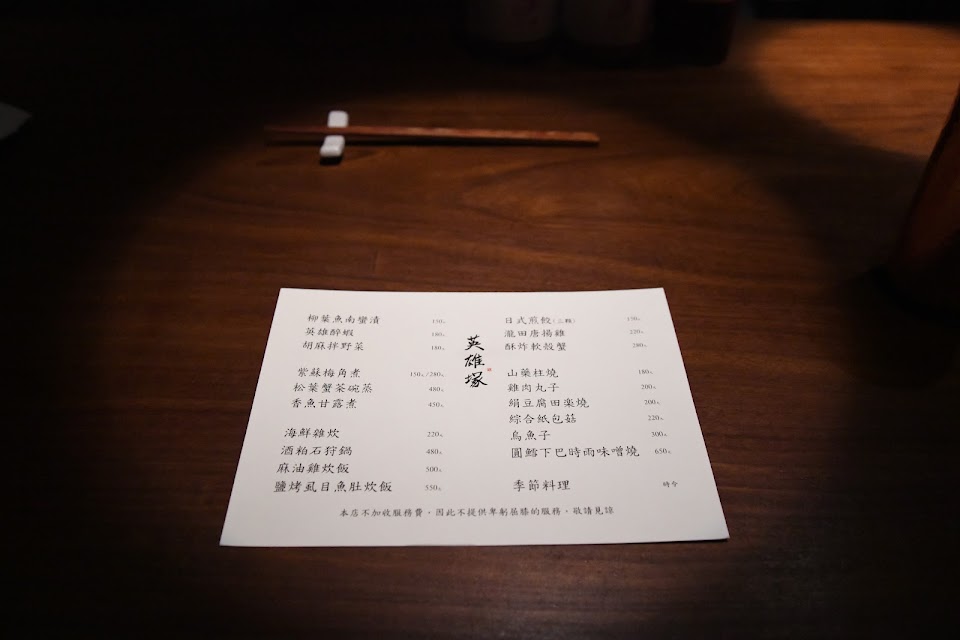 柳葉魚南蠻漬 150.
英雄醉蝦 180.
胡麻拌野菜 180.
紫蘇梅角煮 150./280.
松葉蟹茶碗蒸 480.
香魚甘露煮 450.
海鮮雜炊 220.
酒粕石狩鍋 480.
麻油雞炊飯 500.
鹽烤虱目魚肚炊飯 550.
英雄塚
日式煎餃(三顆) 150.
瀧田唐揚雞 220.
酥炸軟殼蟹 280.
山藥柱燒 180.
雞肉丸子 200.
絹豆腐田楽燒 200.
綜合紙包菇 220.
烏魚子 300.
圓鱈下巴時雨味噌燒 650.
季節料理 時令
本店不加收服務費，因此不提供卑躬屈膝的服務，敬請見諒